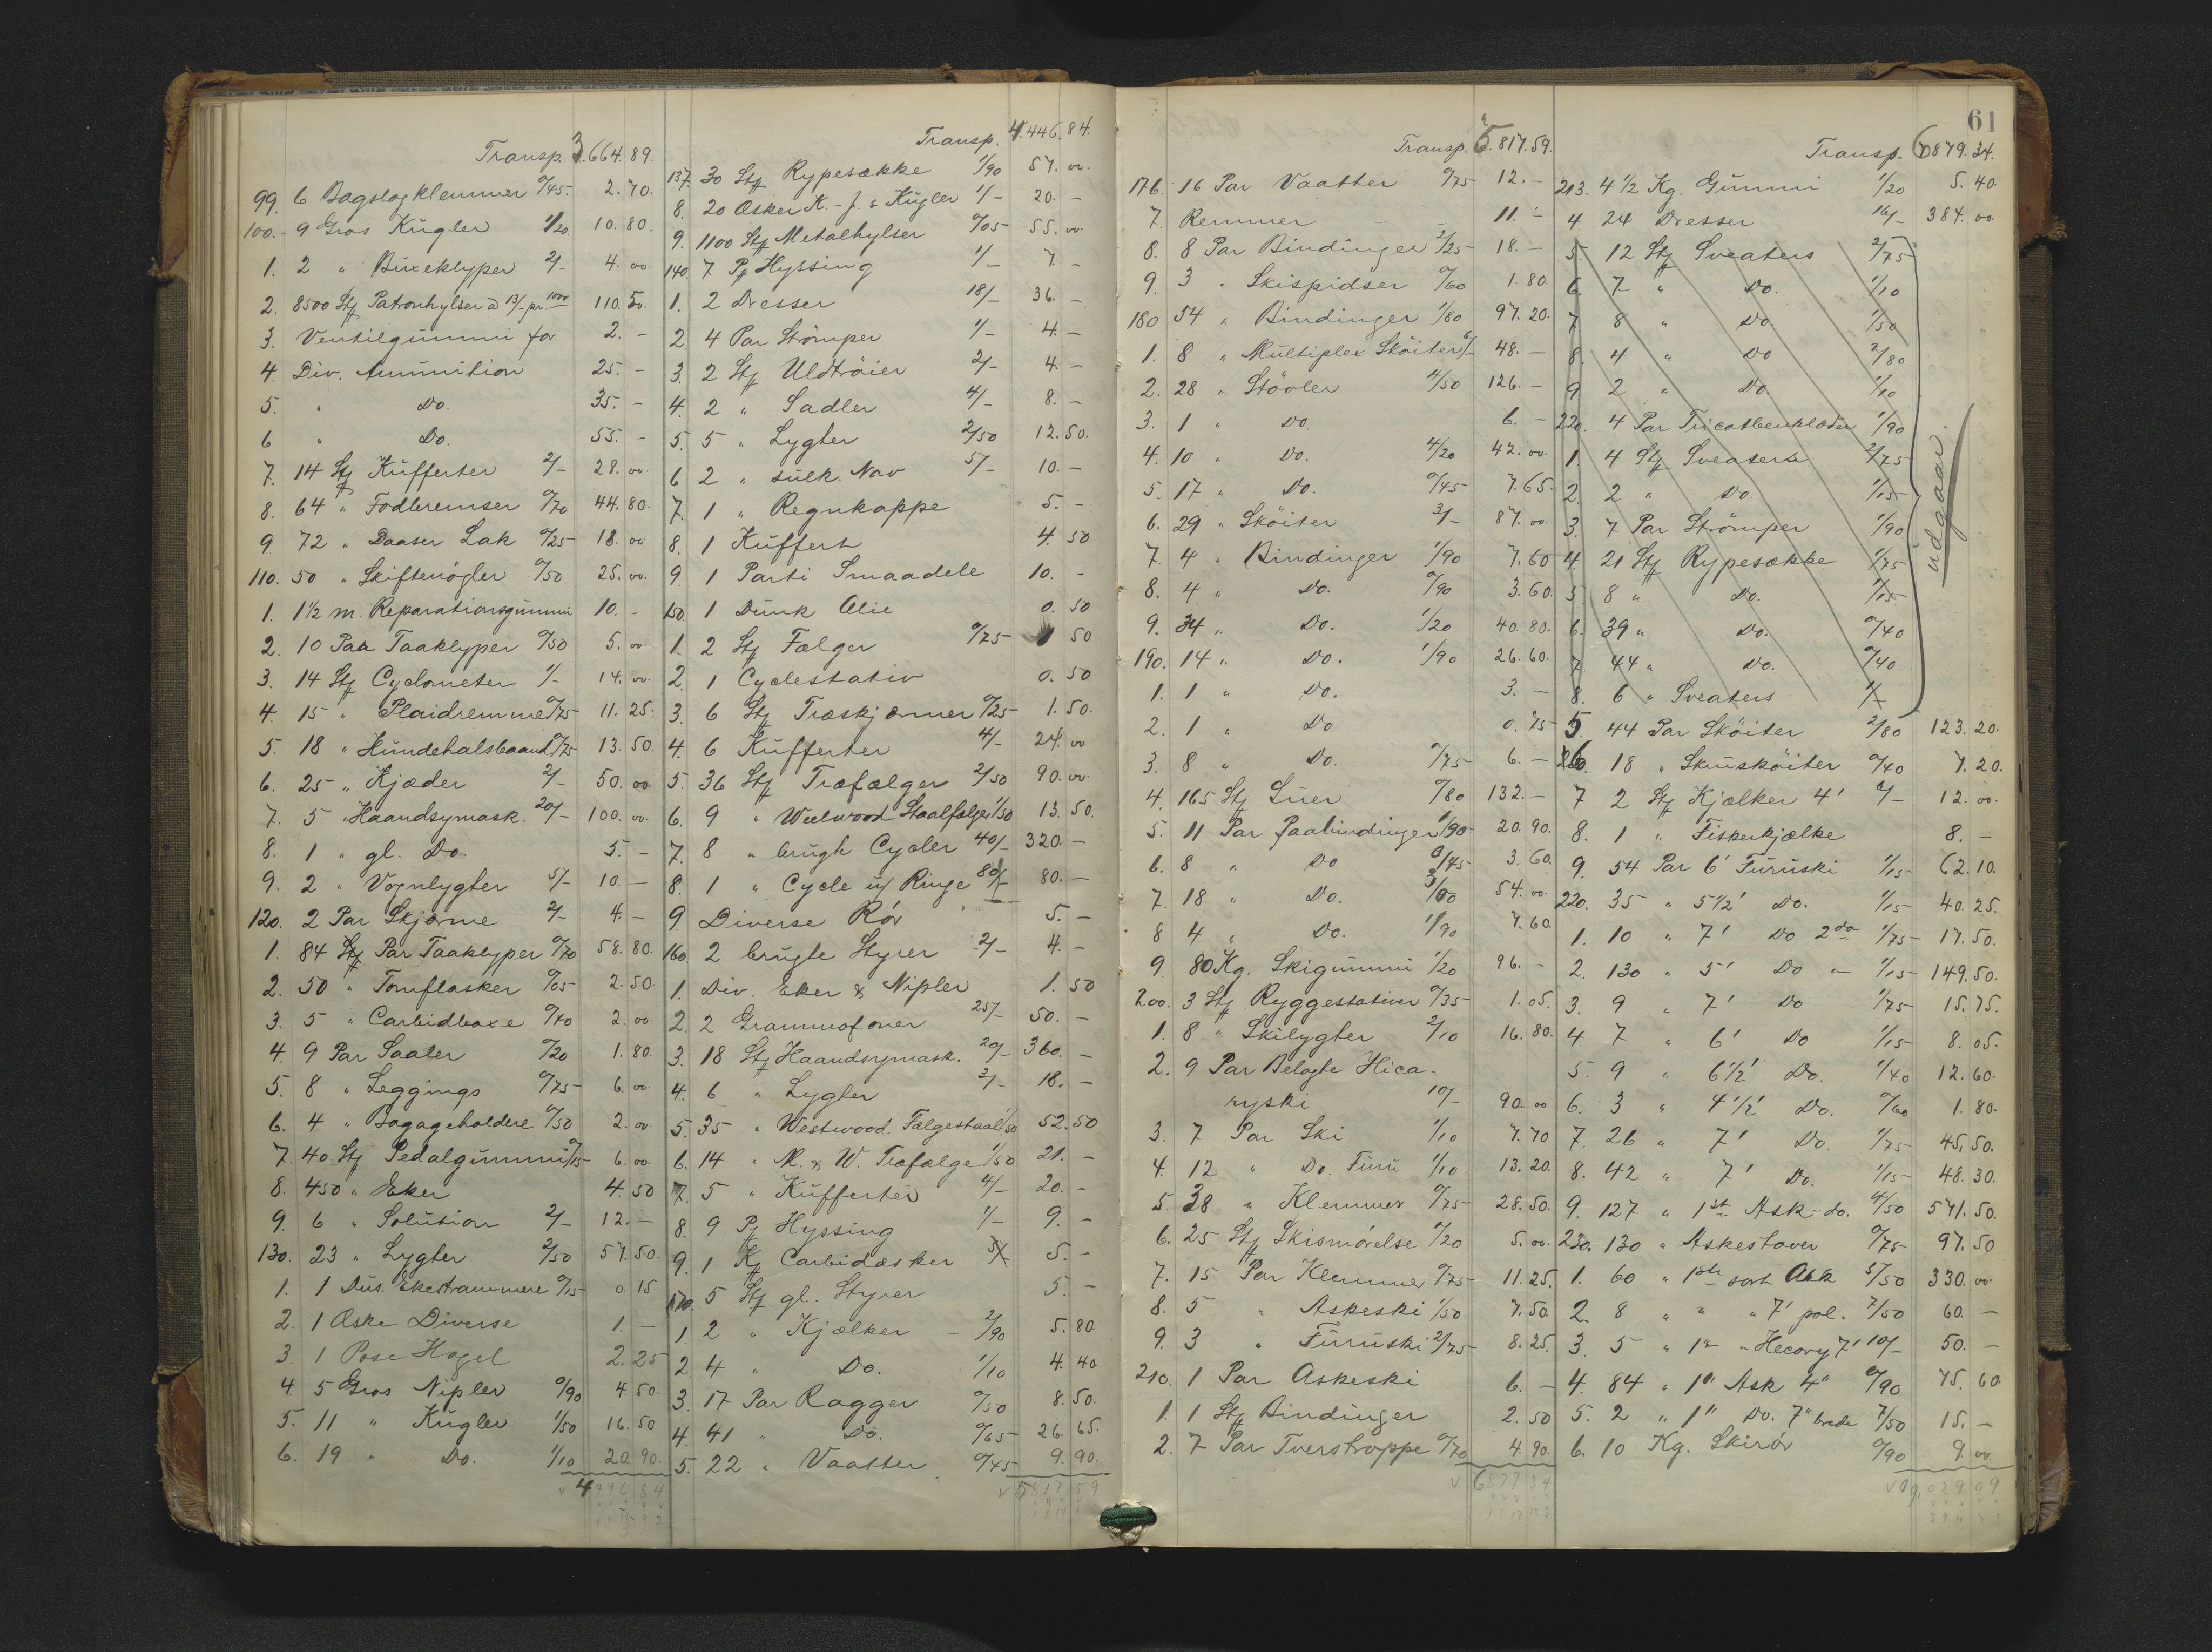 Transp. 3.664.89.
99. 6 Bagslagklemmer 0/45 2.70.
100. 9 Gros Kugler 1/20 10.80.
1. 2 " Buxeklyper 2/- 4.00
2. 8500 Stk Patronhylser a 13/- pr. 1000 110.50.
3. Ventilgummi for 2.-
4. Div. Ammunition 25.-
5. " Do. 35.-
6 " Do. 55.-
7. 14 Stk Kufferter 2/- 28.00.
8. 64 " Fodbremser 0/70 44.80.
9. 72 " Daaser Lak 0/25 18.00
110. 50 " Skiftenøgler 0/50 25.00.
1. 1½ m. Reparationsgummi 10.-
2. 10 Par Taaklyper 0/50 5.00.
3. 14 Stk Cyclometer 1/- 14.00.
4. 15 " Plaidremme 0/75 11.25.
5. 18 " Hundehalsbaand 0/75 13.50.
6. 25 " Kjæder 2/- 50.00
7. 5 " Haandsymask. 20/- 100.00.
8. 1 " gl. Do. 5.-
9. 2 " Vognlygter 5/- 10.-
120. 2 Par Skjærme 2/- 4.-
1. 84 Stk Par Taaklyper 0/70 58.80.
2. 50 " Tomflasker 0/05 2.50.
3. 5 " Carbidboxe 0/40 2.00.
4. 9 Par Saaler 0/20 1.80.
5. 8 " Leggings 0/75 6.00.
6. 4 " Bagageholdere 0/50 2.00.
7. 40 Stk Pedalgummi 0/15 6.00.
8. 450 " Eker 4.50
9. 6 " Solution 2/- 12.-
130. 23 " Lygter 2/50 57.50.
1. 1 Dus. Ekestrammere 0/15 0.15.
2. 1 Æske Diverse 1.-
3. 1 Pose Hagel 2.25
4. 5 Gros Nipler 0/90 4.50.
5. 11 " Kugler 1/50 16.50
6. 19 " Do. 1/10 20.90.
4446 84
Transp. 4.446.84.
137. 30 Stk Rypesække 1/90 57.00.
8. 20 Æsker K.-j. & Kugler 1/- 20.-
9. 1100 Stk Metalhylser 0/05 55.00.
140. 7 Pk Hyssing 1/- 7.-
1. 2 Dresser 18/- 36.-
2. 4 Par Strömper 1/- 4.-
3. 2 Stk Uldtröier 2/- 4.-
4. 2 " Sadler 4/- 8.-
5. 5 " Lygter 2/50 12.50.
6 2 " sulk. Nav 5/- 10.-
7. 1 " Regnkappe 5.-
8. 1 Kuffert 4.50
9. 1 Parti Smaadele 10.-
150. 1 Dunk Olie 0.50
1. 2 Stk Fælger 0/75 1 50
2. 1 Cyclestativ 0.50
3. 6 Stk Træskjærmer 0/25 1.50.
4. 6 Kufferter 4/- 24.00
5. 36 Stk Træfælger 2/50 90.00.
6. 9 " Weelwood Staalfælger 1/50 13.50.
7. 8 " brugte Cycler 40/- 320.-
8. 1 " Cycle u/ Ringe 80/- 80.-
9. Diverse Rör 5.-
160. 2 brugte Styrer 2/- 4.-
1. Div. Eker & Nipler 1.50
2. 2 Grammofoner 25/- 50.-
3. 18 Stk Haandsymask. 20/- 360.-
4. 6 " Lygter 3/- 18.-
5. 35 " Westwood Fælgestaal 1/50 52.50
6. 14 " M. & W. Træfælge 1/50 21.-
7. 5 " Kufferter 4/- 20.-
8. 9 Pk Hyssing 1/- 9.-
9. 1 Kg Carbidæsker 5/- 5.-
170. 5 Stk gl. Styrer 5.-
1. 2 " Kjælker 2/90 5.80.
2. 4 " Do. 1/10 4.40
3. 17 Par Ragger 0/50 8.50.
4. 41 " Do. 0/65 26.65.
5. 22 " Vaatter 0/45 9.90.
5817 59
Transp. 5.817.59.
176. 16 Par Vaatter 0/75 12.-
7. Remmer 11.-
8. 8 Par Bindinger 2/25 18.-
9. 3 " Skispidser 0/60 1.80
180 54 " Bindinger 1/80 97.20.
1. 8 " Multiplex Sköiter 6/- 48.-
2. 28 " Stövler 4/50 126.-
3. 1 " Do. 6.-
4. 10 " Do. 4/20 42.00.
5. 17 " Do. 0/45 7.65.
6. 29 " Sköiter 3/- 87.00.
7. 4 " Bindinger 1/90 7.60
8. 4 " Do. 0/90 3.60.
9. 34 " Do. 1/20 40.80.
190. 14 " Do. 1/90 26.60.
1. 1 " Do. 3.-
2. 1 " Do 0.75
3. 8 " Do. 0/75 6.-
4. 165 Stk Luer 0/80 132.-
5. 11 Par Paabindinger 1/90 20.90.
6. 8 " Do 0/45 3.60.
7. 18 " Do. 3/00 54.00.
8 4 " Do. 1/90 7.60.
9. 80 Kg. Skigummi 1/20 96.-
200. 3 Stk Ryggestativer 0/35 1.05.
1. 8 " Skilygter 2/10 16.80.
2. 9 Par Belagte Hica-
ryski 10/- 90.00
3. 7 Par Ski 1/10 7.70
4. 12 " Do. Furu 1/10 13.20.
5. 38 " Klemmer 0/75 28.50.
6. 25 Stk Skismörelse 0/20 5.00.
7. 15 Par Klemmer 0/75 11.25.
8. 5 " Askeski 1/50 7.50.
9. 3 " Furuski 2/75 8.25.
210. 1 Par Askeski 6.-
1. 1 Stk Bindinger 2.50
2. 7 Par Tverstroppe 0/70 4.90.
6879 34
61
Transp. 6879.34.
213. 4½ Kg. Gummi 1/20 5.40.
4 24 Dresser 16/- 384.00
5 12 Stk Sveaters 2/75
6. 7 " Do. 1/10
7 8 " Do 1/50
8. 4 " Do 2/80
9 2 " Do. 1/10
220. 4 Par Tricotbenklæder 1/90
1. 4 Stk Sveaters 2/75
2. 2 " Do. 1/15
3. 7 Par Strömper 1/90
4 21 Stk Rypesække 1/75
5 8 " Do. 1/15
6. 39 " Do. 0/40
7. 44 " Do. 0/40
8. 6 " Sveaters 1/-
udgaar.
5 44 Par Sköiter 2/80 123.20.
6. 18 " Skrusköiter 0/40 7.20.
7 2 Stk Kjælker 4' 6/- 12.00.
8. 1 " Fiskerkjælke 8.-
9. 54 Par 6' Furuski 1/15 62.10.
220. 35 " 5½' Do. 1/15 40.25.
1. 10 " 7' Do 2da 1/75 17.50.
2. 130 " 5' Do " 1/15 149.50.
3. 9 " 7' Do 1/75 15.75.
4 7 " 6' Do 1/15 8.05.
5. 9 " 6½' Do. 1/40 12.60.
6. 3 " 4½' Do. 0/60 1.80.
7. 26 " 7' Do. 1/75 45.50.
8. 42 " 7' Do. 1/15 48.30.
9. 127 " 1ste Ask-do. 4/50 571.50.
230. 130 " Askestaver 0/75 97.50
1. 60 " 1ste sort Ask 5/50 330.00.
2. 8 " " " 7' pol. 7/50 60.-
3. 5 " 1ste " Hecory 7' 10/- 50.-
4. 84 " 1" Ask 4" 0/90 75.60
5. 2 " 1" Do. 7" brede 7/50 15.-
6. 10 Kg. Skirör 0/90 9.00.
9,029 09